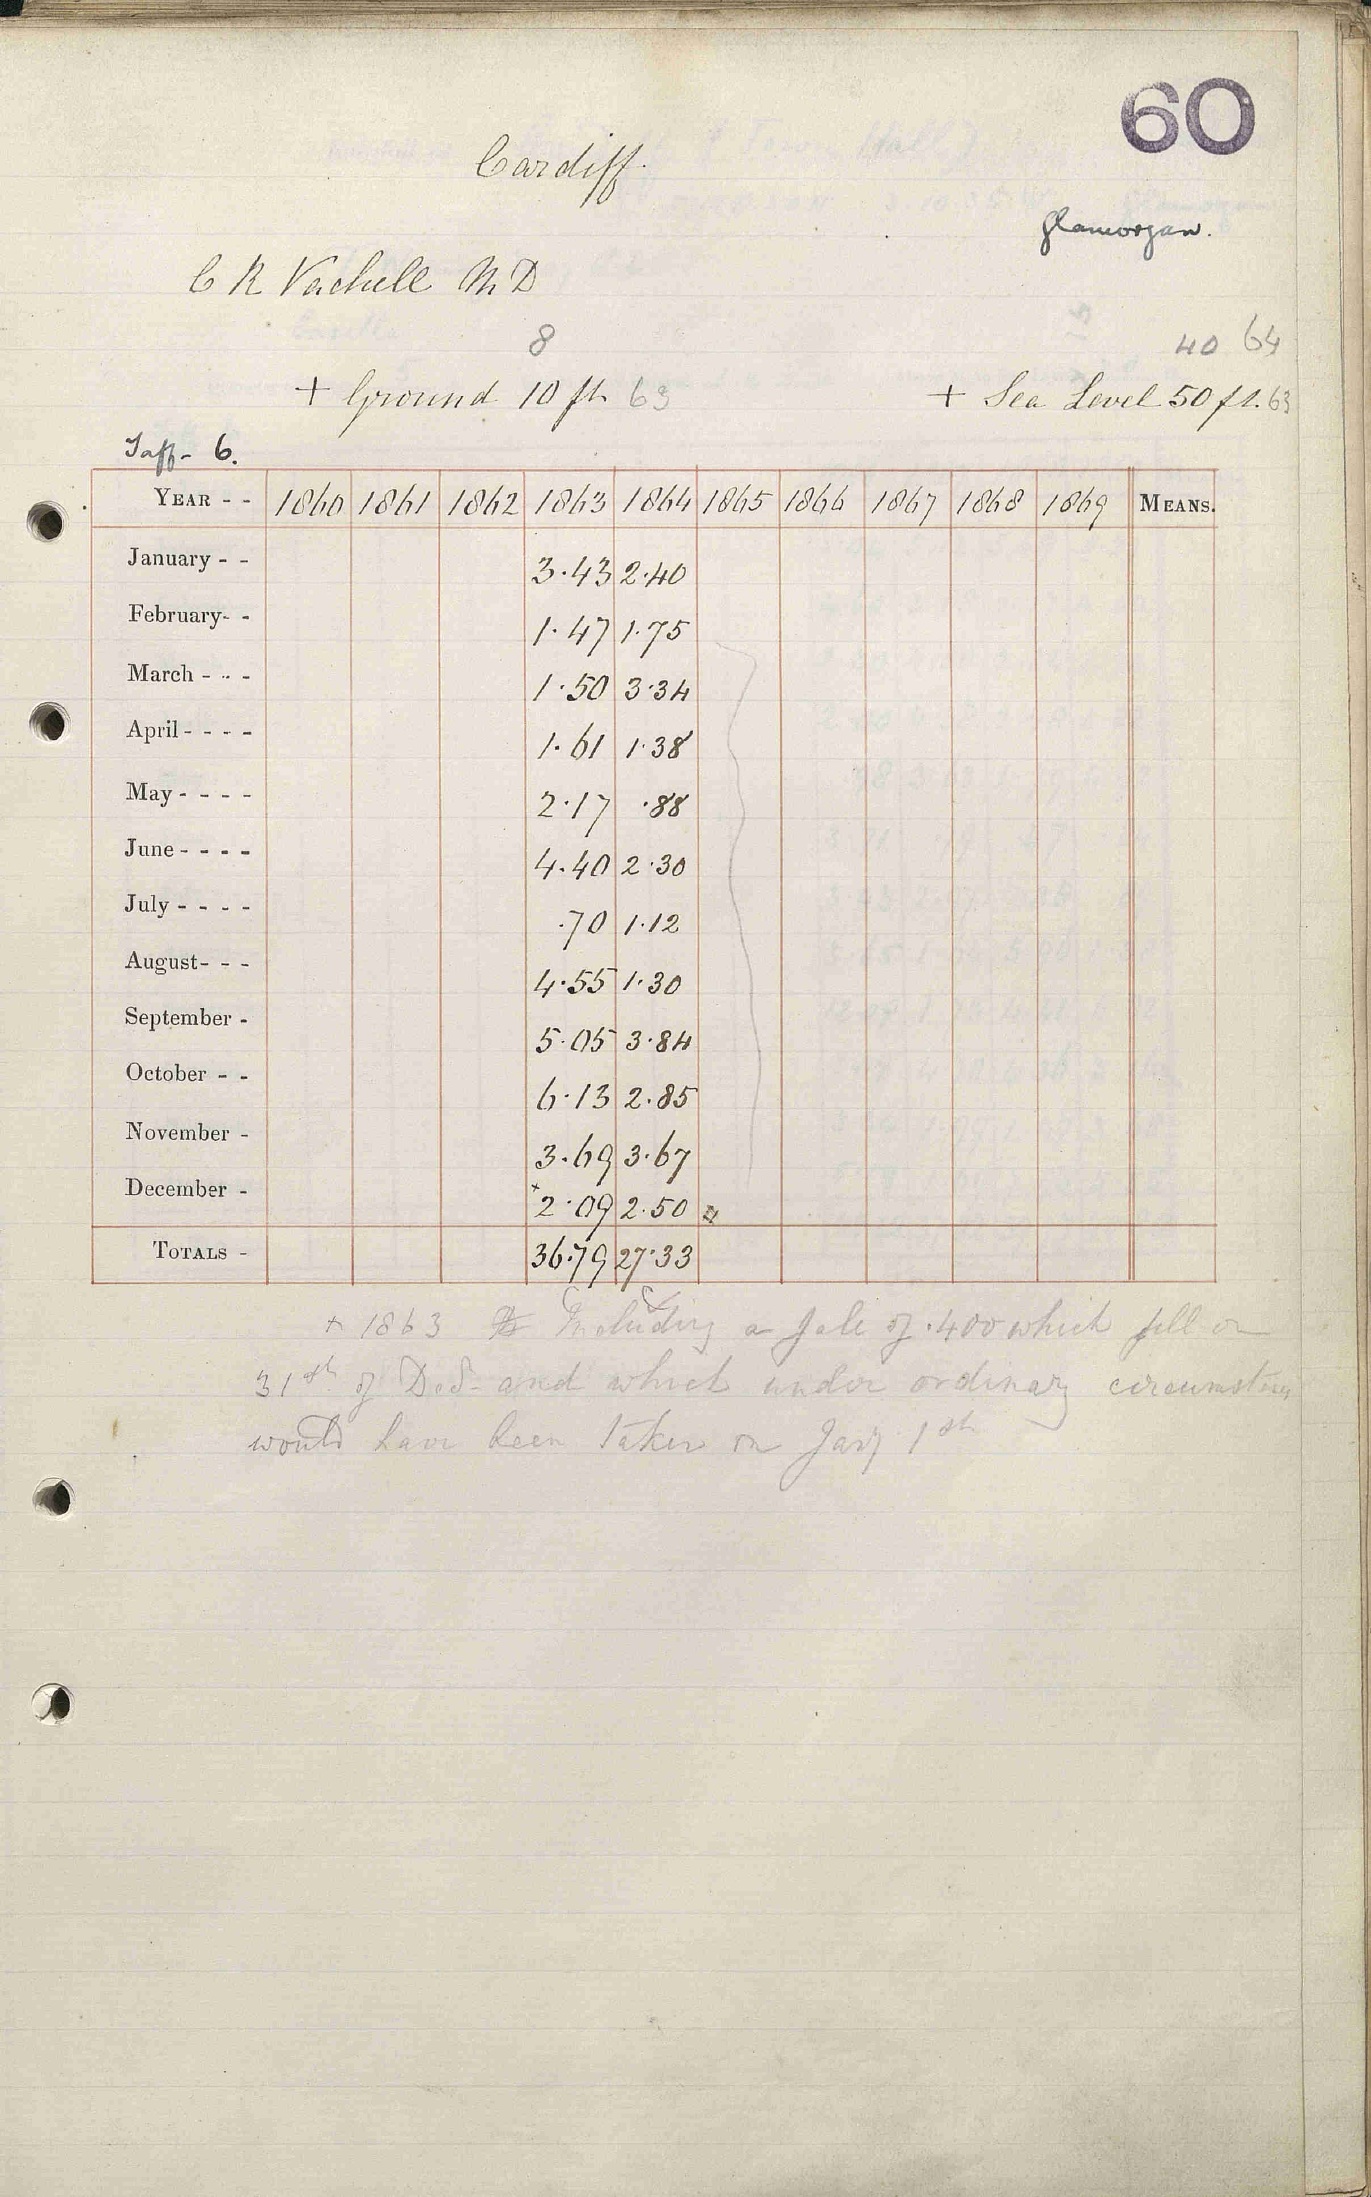 60
Cardiff.
Glamorgan.
C R Vachell M D
8 40 64
+ Ground 10 ft 63 + Sea Level 50 ft. 63
Taff - 6.
YEAR - - 1860 1861 1862 1863 1864 1865 1866 1867 1868 1869 MEANS.
January - - 3.43 2.40
February - - 1.47 1.75
March - - - 1.50 3.34
April - - - - 1.61 1.38
May - - - - 2.17 .88
June - - - - 4.40 2.30
July - - - - .70 1.12
August - - - 4.55 1.30
September - 5.05 3.84
October - - 6.13 2.85
November - 3.69 3.67
December - +2.09 2.50
TOTALS - 36.79 27.33
+ 1863 Including a fall of .400 which fell on
31st of Dec. and which under ordinary
would have been taken on Jany 1st